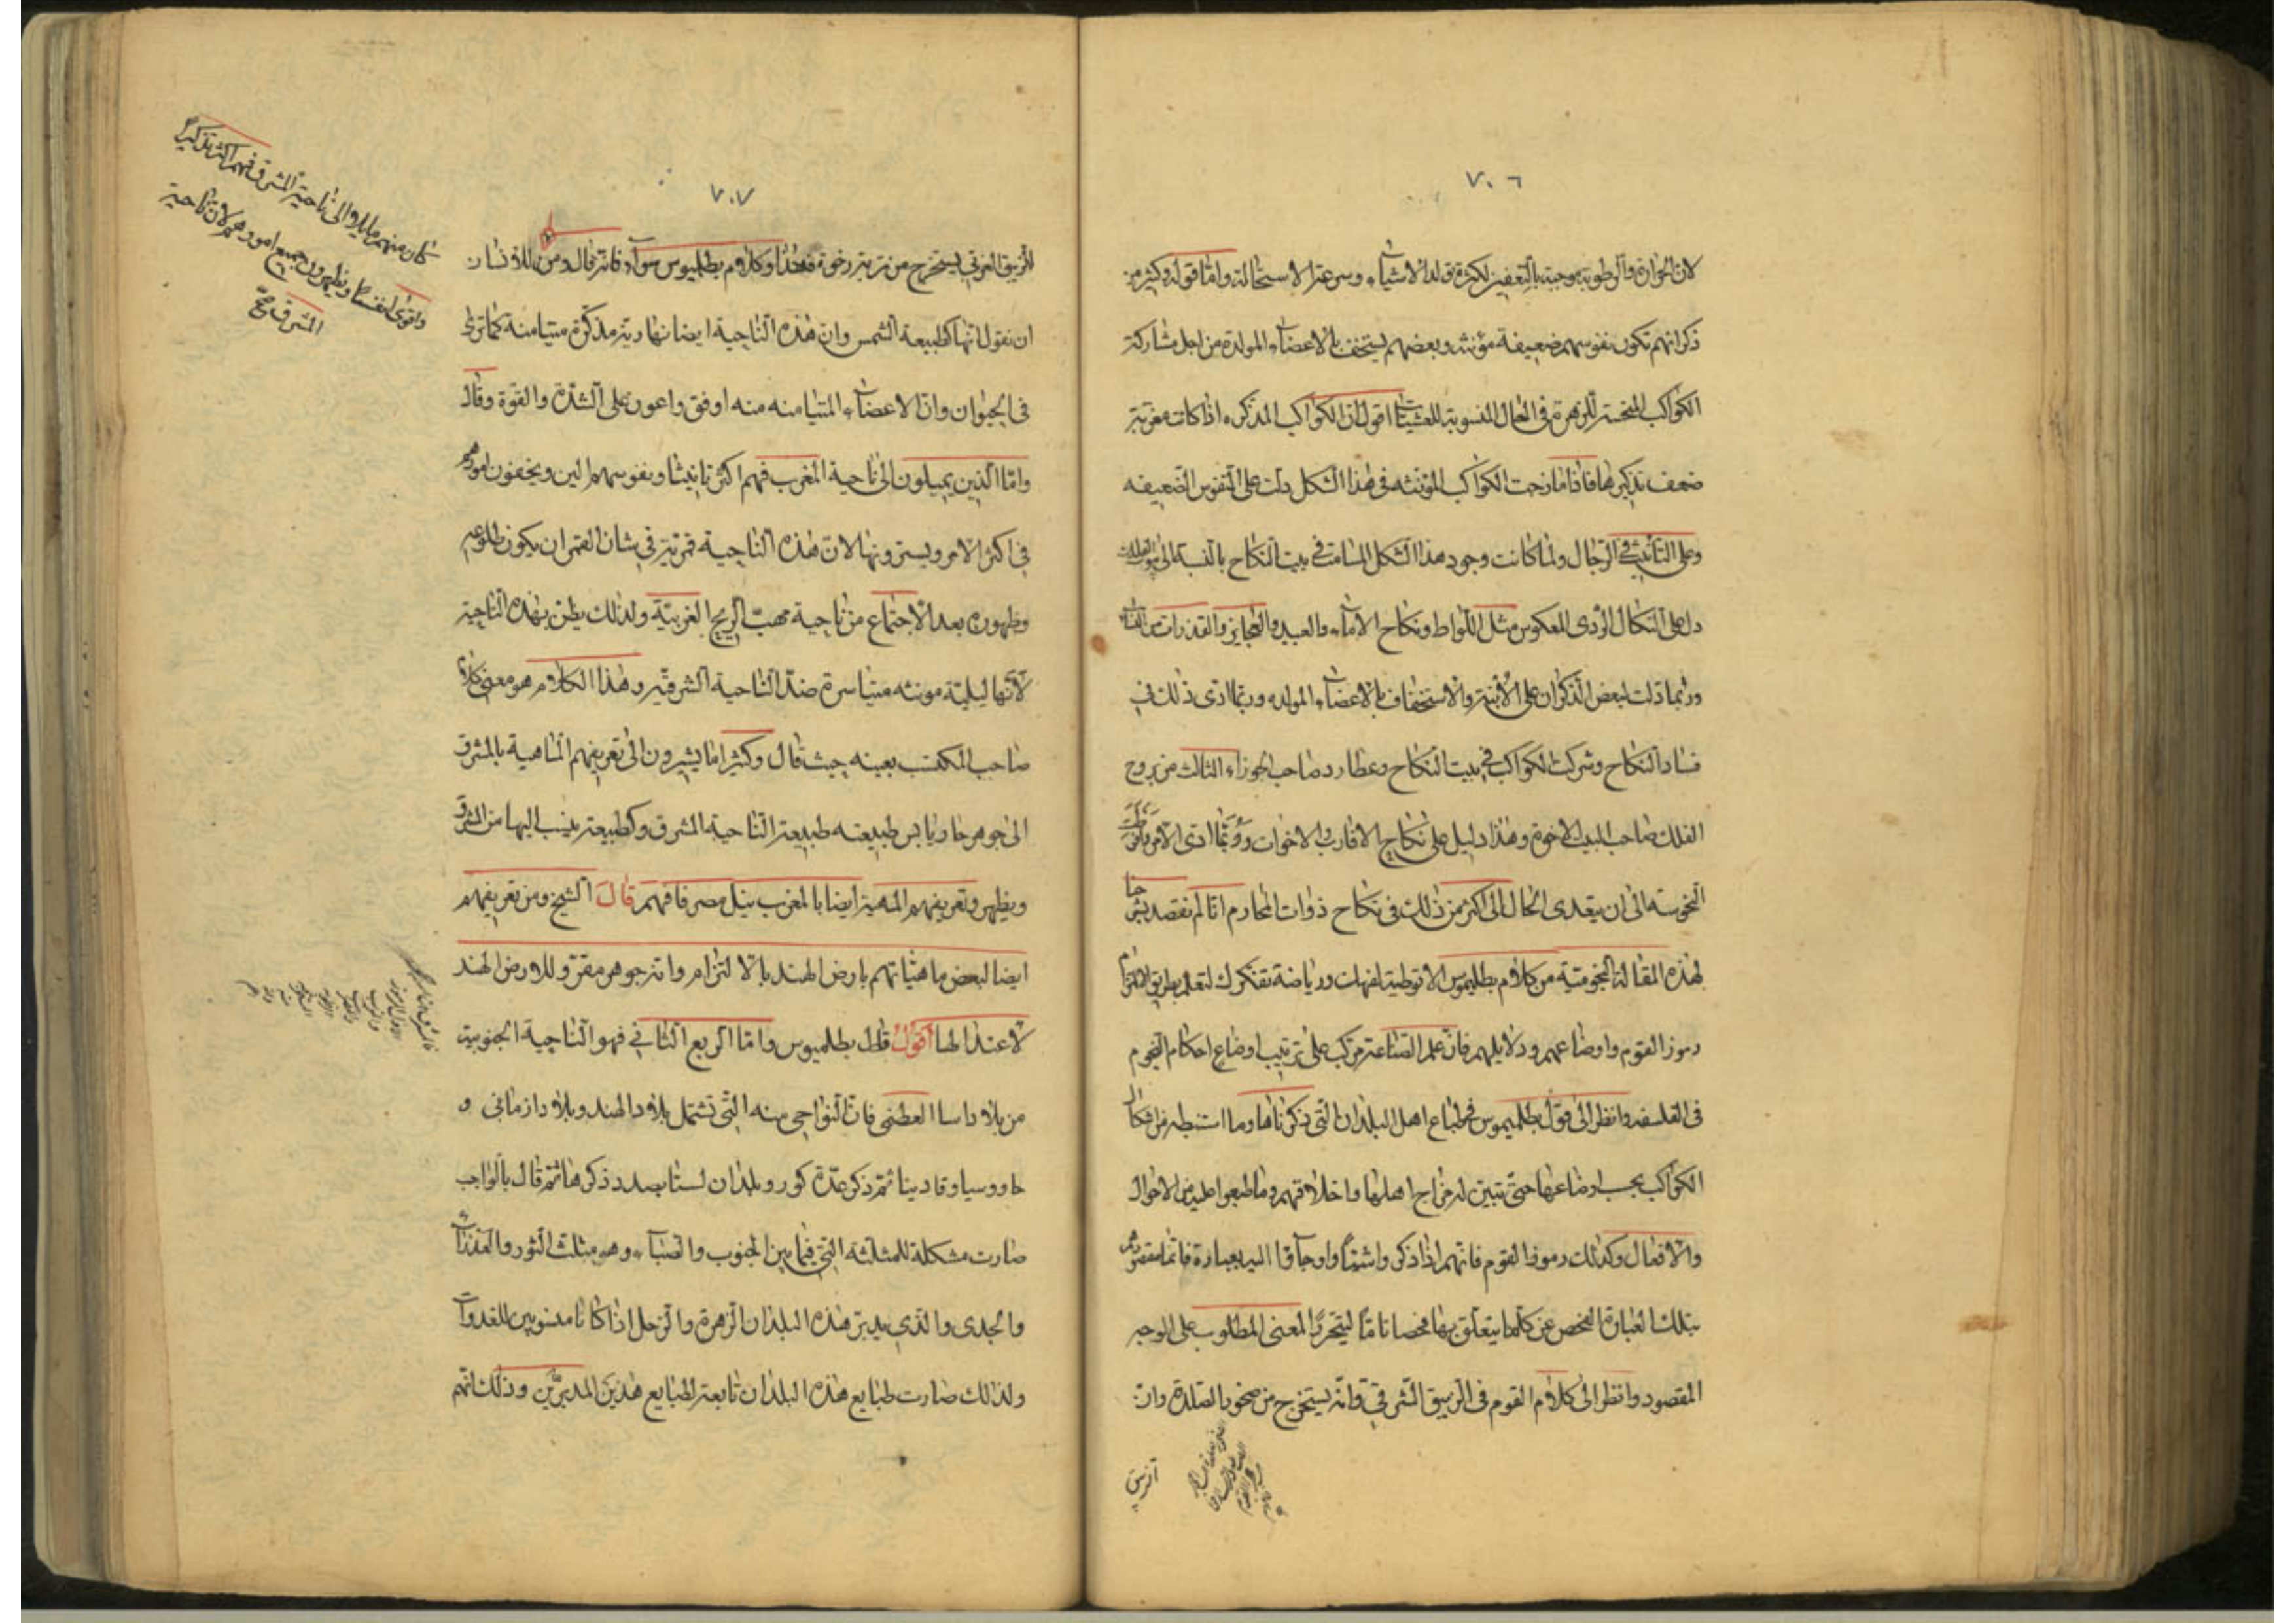 ٧٠٦
لان الحرارة والرطوبة موجبة بالتعفين لكثرة تولد الاشياء وسرعة الاستحالة واما قوله وكثير من
ذكرانهم تكون نفوسهم ضعيفة مؤنثه وبعضهم يستخف بالاعضاء المولدة من اجل مشاركة
الكواكب المنحسة للزهرة في الحال المنسوبة للعشيات اقول ان الكواكب المذكره اذا كانت مغربية
ضعف تذكيرها فاذا مازجت الكواكب المؤنثه في هذا الشكل دلت على النفوس الضعيفه
وعلى التأنيث في الرجال ولما كانت وجود هذا الشكل المسامت في بيت النكاح بالنسبة الى
دل على النكاح الردى المعكوس مثل اللواط ونكاح الاماء والعبيد والعجايز والقذرات من النساء
وربما دلت لبعض الذكران على الأبنة والاستخفاف بالاعضاء المولده وربما ادى ذلك في
فساد النكاح وشركت الكواكب في بيت النكاح وعطارد صاحب الجوزاء الثالث من بروج
الفلك صاحب البيت الاخوة وهذا دليل على نكاح الاقارب والاخوات وربما ادى الامر
النحوسه الى ان يتعدى الحال الى اكثر من ذلك في نكاح ذوات المحارم انا لم نقصد بشرحنا
لهذه المقالة النجومية من كلام بطليموس الا توطية لفهمك ورياضة تفكرك لتعلم بطريق الالتزام
رموز القوم واوضاعهم ودلايلهم فان علم الصناعة مركب على ترتيب اوضاع احكام النجوم
في الفلسفه وانظر الى قول بطلميوس في طباع اهل البلدان التي ذكرناها وما استنبطه من اشكال
الكواكب بحسب اوضاعها حتى تبين له مزاج اهلها واخلاقهم وما طبعوا عليه من الاحوال
والافعال وكذلك رموز القوم فانهم اذا ذكروا شيئا واوجاؤا اليه بعبارة فانما مقصودهم
بتلك العبارة الفحص عن كلما يتعلق بها فحصا تاما ليتحرر المعنى المطلوب على الوجه
المقصود وانظر الى كلام القوم في الزيبق الشرقي وانه يستخرج من صخور الصلدة وان
٧٠٧
الزيبق الغربي يستخرج من تربة رخوة فهذا وكلام بطلميوس سواء فانه قال ومن
ان نقول انها كطبيعة الشمس وان هذه الناحية ايضا نهارية مذكرة متيامنه كما ترى
في الحيوان وان الاعضاء المتيامنه منه اوفق واعون على الشدة والقوة وقال
واما الذين يميلون الى ناحية المغرب فهم اكثر تانيثا ونفوسهم الين ويخفون امورهم
في اكثر الامر ويسترونها لان هذه الناحية قمرية في شان القمر ان يكون طلوعه
وظهوره بعد الاجتماع من ناحية مهب الريح الغربية ولذلك يظن بهذه الناحية
لانها ليلية مونثه متياسرة ضد الناحية الشرقيه وهذا الكلام هو معنى كلام
صاحب المكتسب بعينه حيث قال وكثيرا ما يشيرون الى تعريفهم الماهية بالمشرق
الى جوهر حار يابس طبيعته طبيعة الناحية المشرق وكطبيعة ينسب اليها من المشرق
ويظهر وتعريفهم المهية ايضا بالمغرب بنيل مصر فافهم قال الشيخ ومن تعريفهم
ايضا لبعض ماهياتهم بارض الهند بالالتزام وانه جوهر مقر وللارض الهند
لاعتدالها اقول قال بطلميوس واما الربع الثاني فهو الناحية الجنوبية
من بلاد اسا العظمى فان النواحي منه التي تشتمل بلاد الهند وبلاد ازمانى و
حاروسيا وقادينا ثم ذكر عدة كور وبلدان لسنا بصدد ذكرها ثم قال بالواجب
صارت مشكلة للمثلثه التي فيما بين الجنوب والصباء وهو مثلث الثور والعذراء
والجدى والذى يدبر هذه البلدان الزهرة والزحل اذا كانا منسوبين للغدوات
ولذلك صارت طبايع هذه البلدان تابعة لطبايع هذين المدبرين وذلك انهم
كان منهم مايلا الى ناحية المشرق فهم اكثر تذكيرا
واقوى انفسا ويظهرون جميع امورهم لان ناحية
المشرق صح